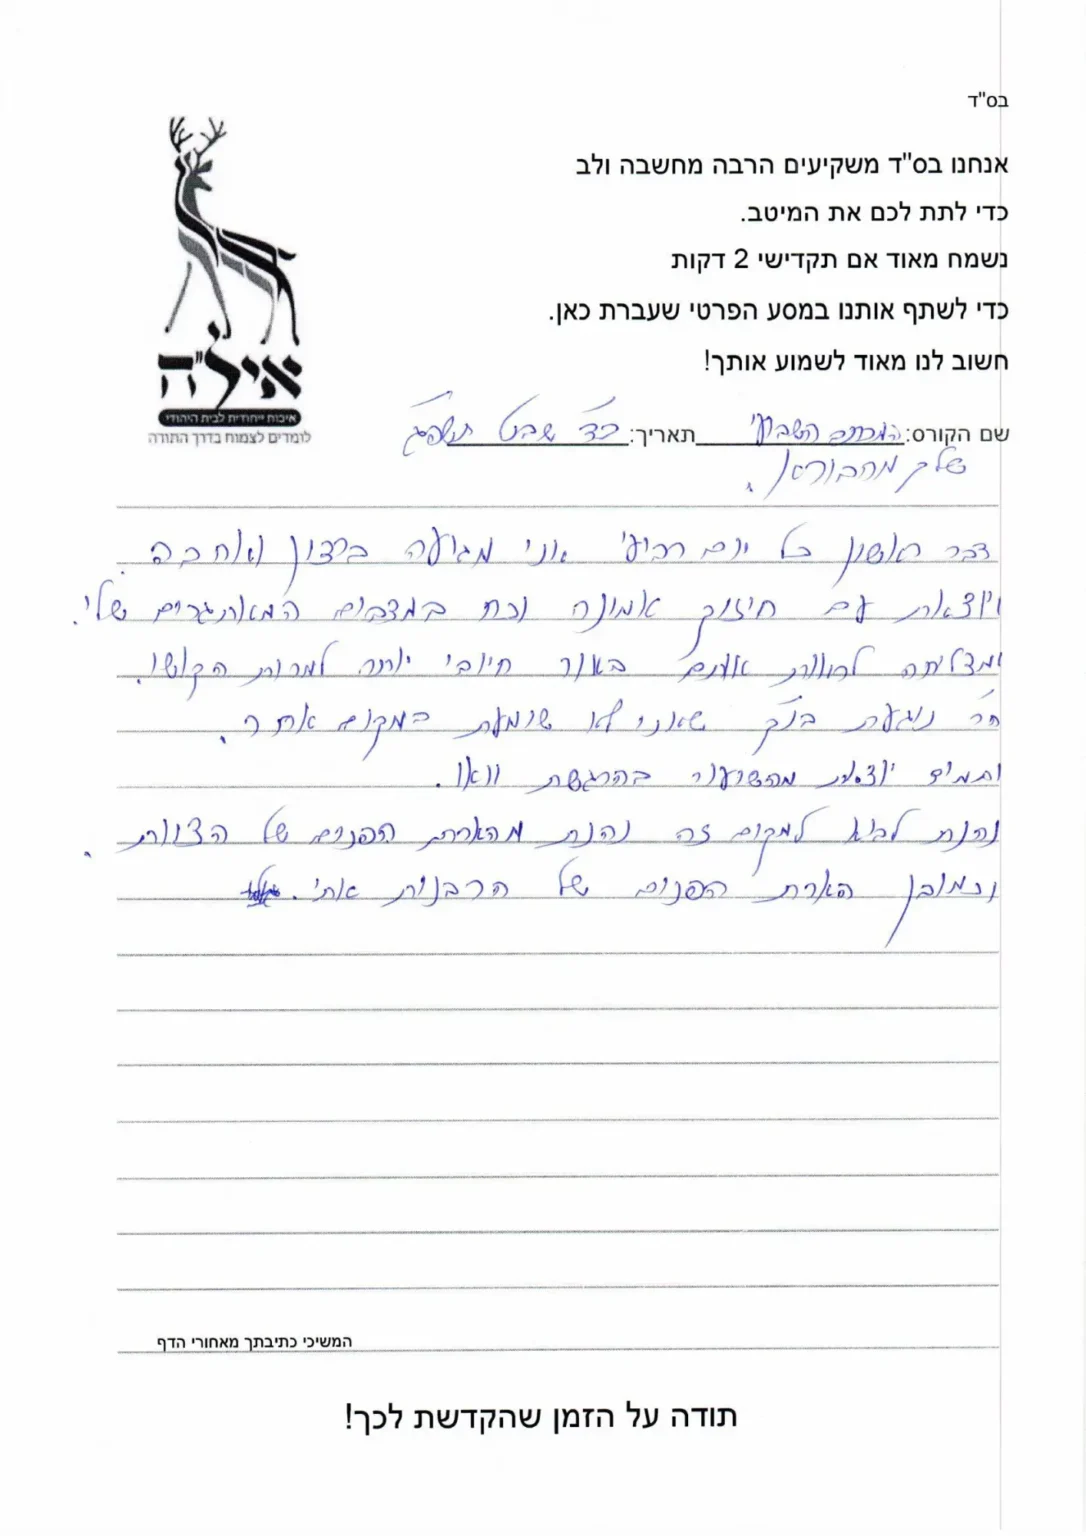 בס"ד
אנחנו בס"ד משקיעים הרבה מחשבה ולב
כדי לתת לכם את המיטב.
נשמח מאוד אם תקדישי 2 דקות
כדי לשתף אותנו במסע הפרטי שעברת כאן.
חשוב לנו מאוד לשמוע אותך!
איל"ה
איכות ייחודית לבית היהודי
לומדים לצמוח בדרך התורה
שם הקורס: המכתב השבועי תאריך: כ"ד שבט תשפ"ג
שלך מהבורא.
דבר ראשון כל יום רביעי אני מגיעה ברצון ואוהבה.
ויוצאת עם חיזוק אמונה וכח במצבים המאתגרים שלי.
ומצליחה לראות אותם באור חיובי יותר למרות הקושי.
חני נוגעת בנק' שאני לא שומעת במקום אחר.
ותמיד יוצאת מהשיעור בהרגשת וואו.
נהנת לבוא למקום זה נהנת מהארת הפנים של הצוות.
וכמובן הארת הפנים של הרבנית אתי.
המשיכי כתיבתך מאחורי הדף
תודה על הזמן שהקדשת לכך!